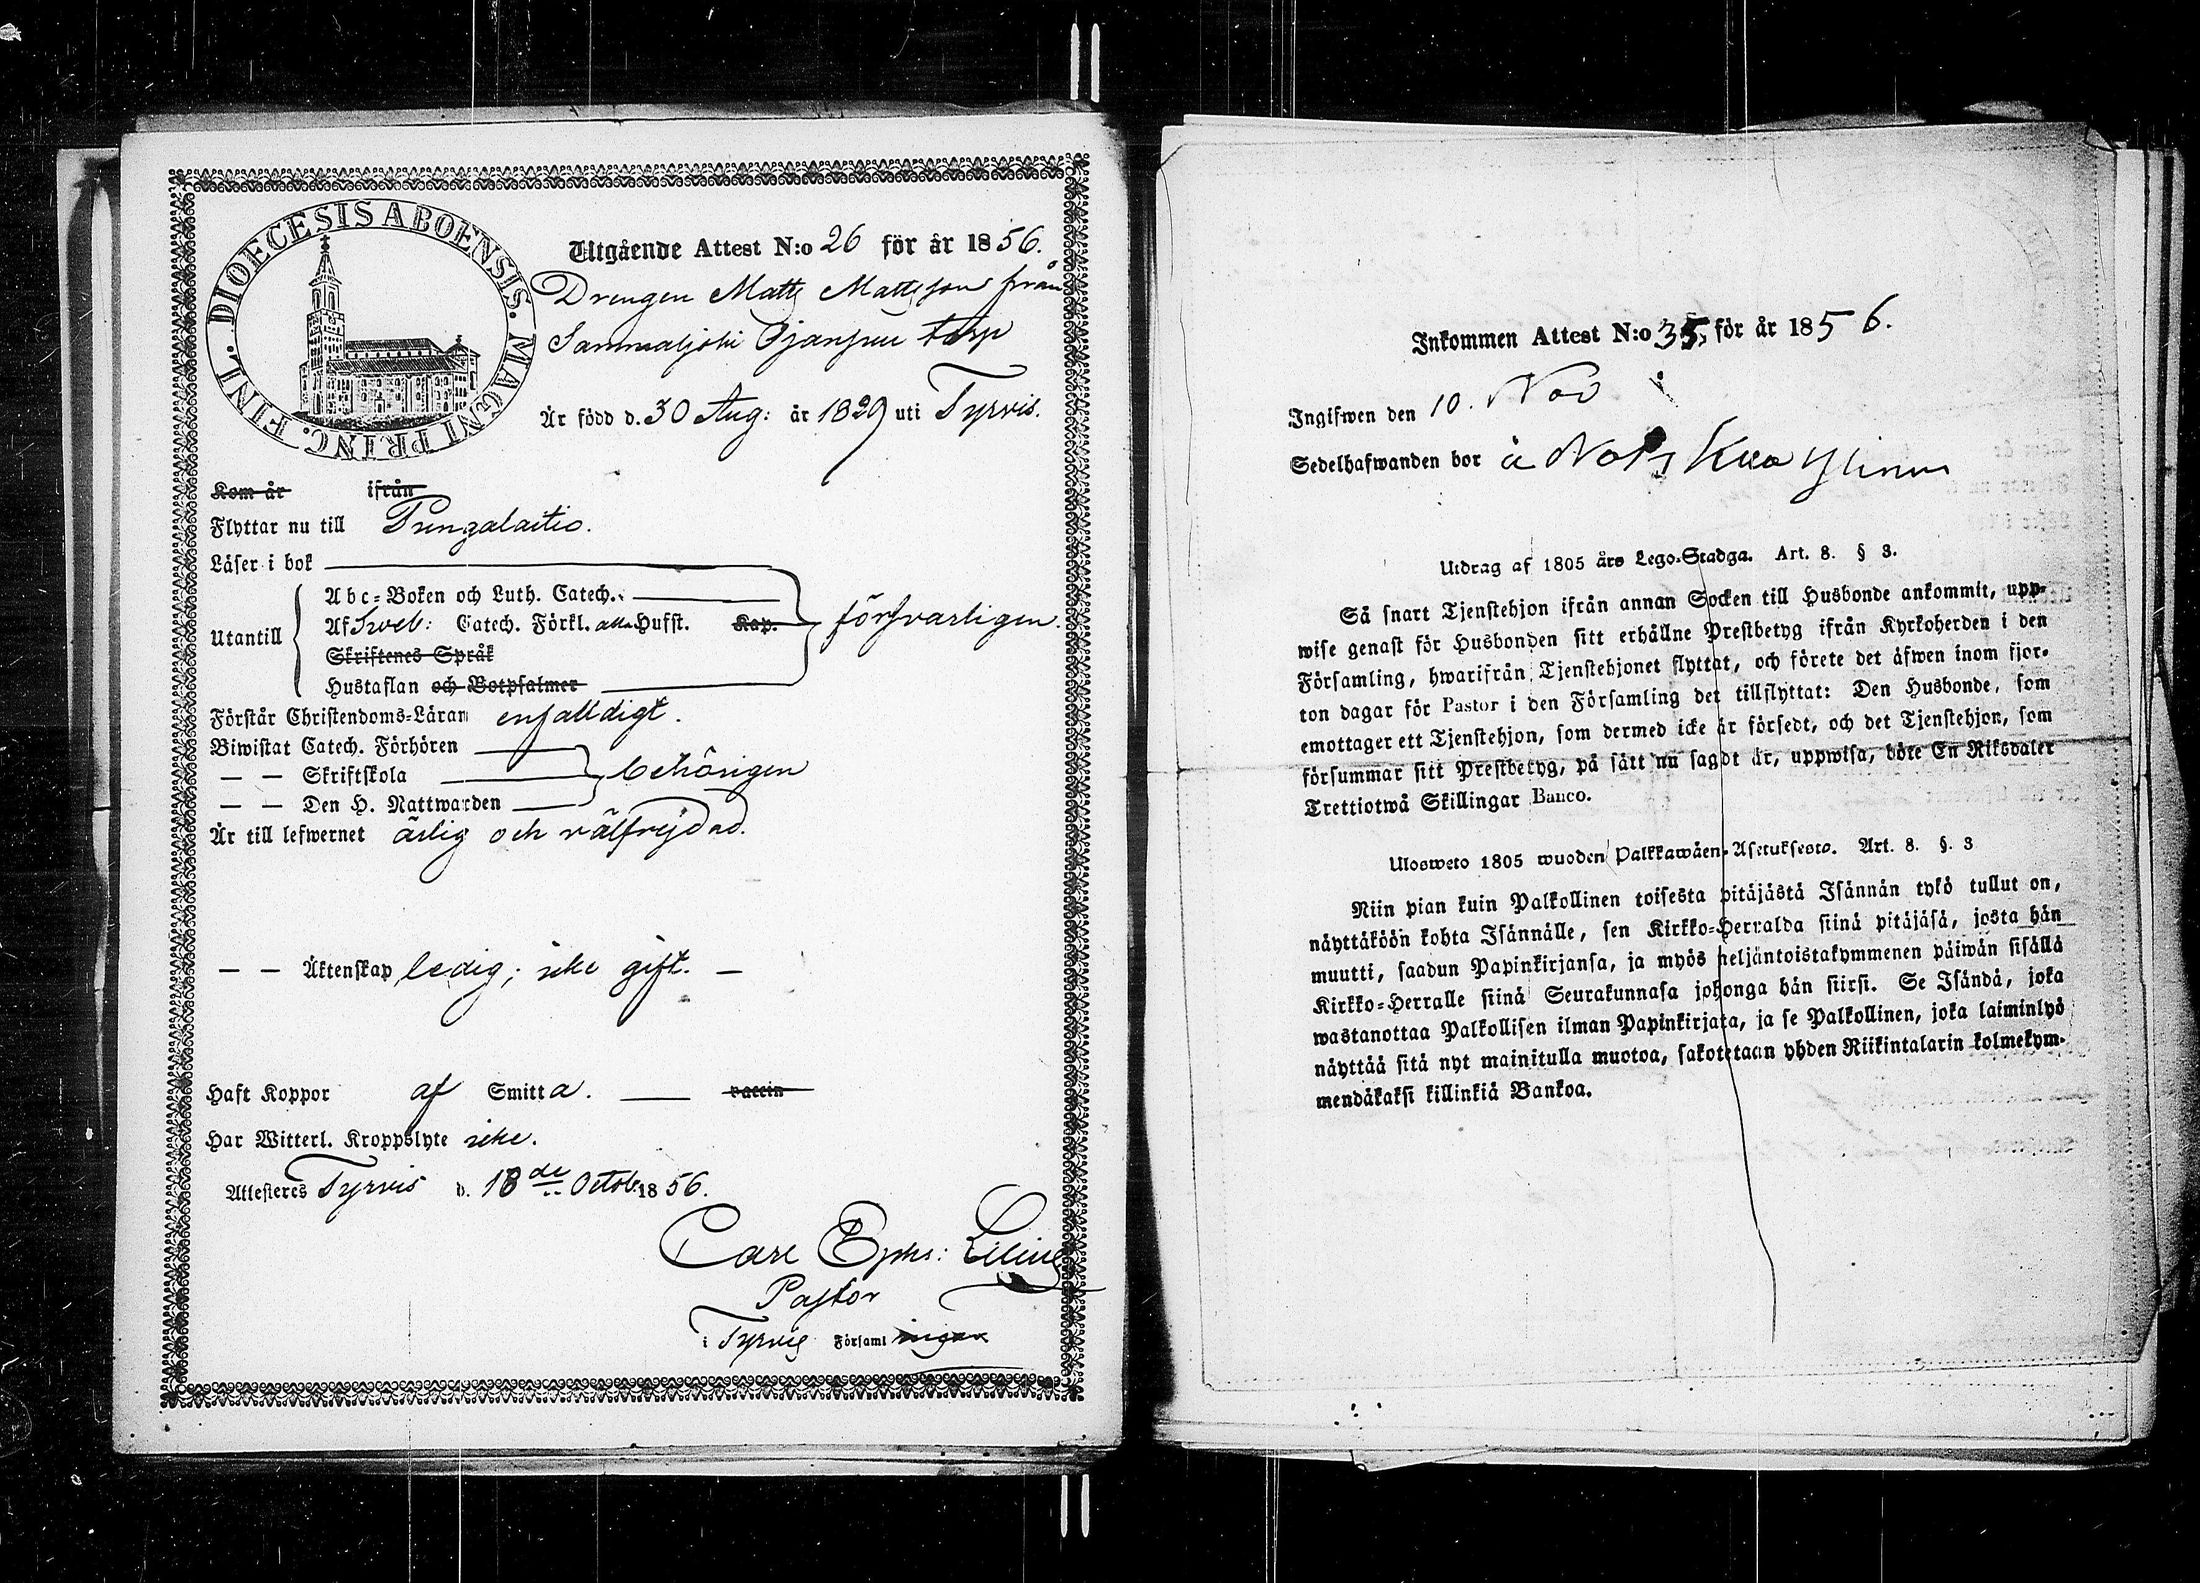 DIOECESIS ABOENSIS. MAGNI PRINC. FINL.
Utgående Attest N:o 26 för år 1856.
Drengen Matts Mattsson från
Sammaljoki torp
Är född d. 30 Aug: år 1829 uti Tyrvis.
Kom år ifrån
Flyttar nu till Pungalaitio.
Läser i bok
Utantill
Abc-Boken och Luth. Catech.
Af Sveb: Catech. Förkl. alla Husst. Kap. försvarligen.
Skriftenes Språk
Hustaflan och Botpsalmer
Förstår Christendoms-Läran enfalldigt.
Biwistat Catech. Förhören
— — Skriftskola behörigen
— — Den H. Nattwarden
Är till lefwernet ärlig och välfrejdad.
— — Äktenskap ledig; icke gift. —
Haft Koppor af Smitta. — vaccin
Har Witterl. Kroppslyte icke.
Attesteres Tyrvis d. 18de Octob. 1856.
Carl Ephr:
Pastor
i Tyrvis Församl
Inkommen Attest N:o 35, för år 1856.
Ingifwen den 10. Nov
Sedelhafwanden bor å
Utdrag af 1805 års Lego-Stadga. Art. 8. § 3.
Så snart Tjenstehjon ifrån annan Socken till Husbonde ankommit, upp-
wise genast för Husbonden sitt erhållne Prestbetyg ifrån Kyrkoherden i den
Församling, hwarifrån Tjenstehjonet flyttat, och förete det äfwen inom fjor-
ton dagar för Pastor i den Församling det tillflyttat: Den Husbonde, som
emottager ett Tjenstehjon, som dermed icke är försedt, och det Tjenstehjon, som
försummar sitt Prestbetyg, på sätt nu sagdt är, uppwisa, böte En Riksdaler
Trettiotwå Skillingar Banco.
Ulosweto 1805 wuoden Palkkawäen-Asetuksesta. Art. 8. §. 3
Niin pian kuin Palkollinen toisesta pitäjästä Isännän tykö tullut on,
näyttäköön kohta Isännälle, sen Kirkko-Herralda siinä pitäjäsä, josta hän
muutti, saadun Papinkirjansa, ja myös neljäntoistakymmenen päiwän sisällä
Kirkko-Herralle siinä Seurakunnasa johonga hän siirsi. Se Isändä, joka
wastanottaa Palkollisen ilman Papinkirjata, ja se Palkollinen, joka laiminlyö
näyttää sitä nyt mainitulla muotoa, sakotetaan yhden Riikintalarin kolmekym-
mendäkaksi killinkiä Bankoa.